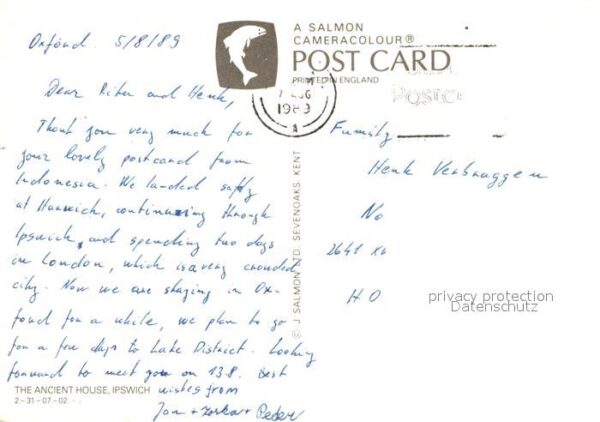 Oxford. 5/8/89
A SALMON
CAMERACOLOUR®
POST CARD
PRINTED IN ENGLAND
AUG
1989
A
POSTC
Dear and Henk,
Thank you very much for
your lovely postcard from
Indonesia. We landed safely
at Harwich, continuing through
Ipswich, and spending two days
in London, which is a very crowded
city. Now we are staying in Ox-
ford for a while, we plan to go
for a few days to Lake District. Looking
forward to meet you on 13.8. Best
wishes from
Jan + + Peter
Henk Verbruggen
No
2641
HO
© J SALMON LTD. SEVENOAKS. KENT
THE ANCIENT HOUSE, IPSWICH
2-31-07-02
privacy protection
Datenschutz